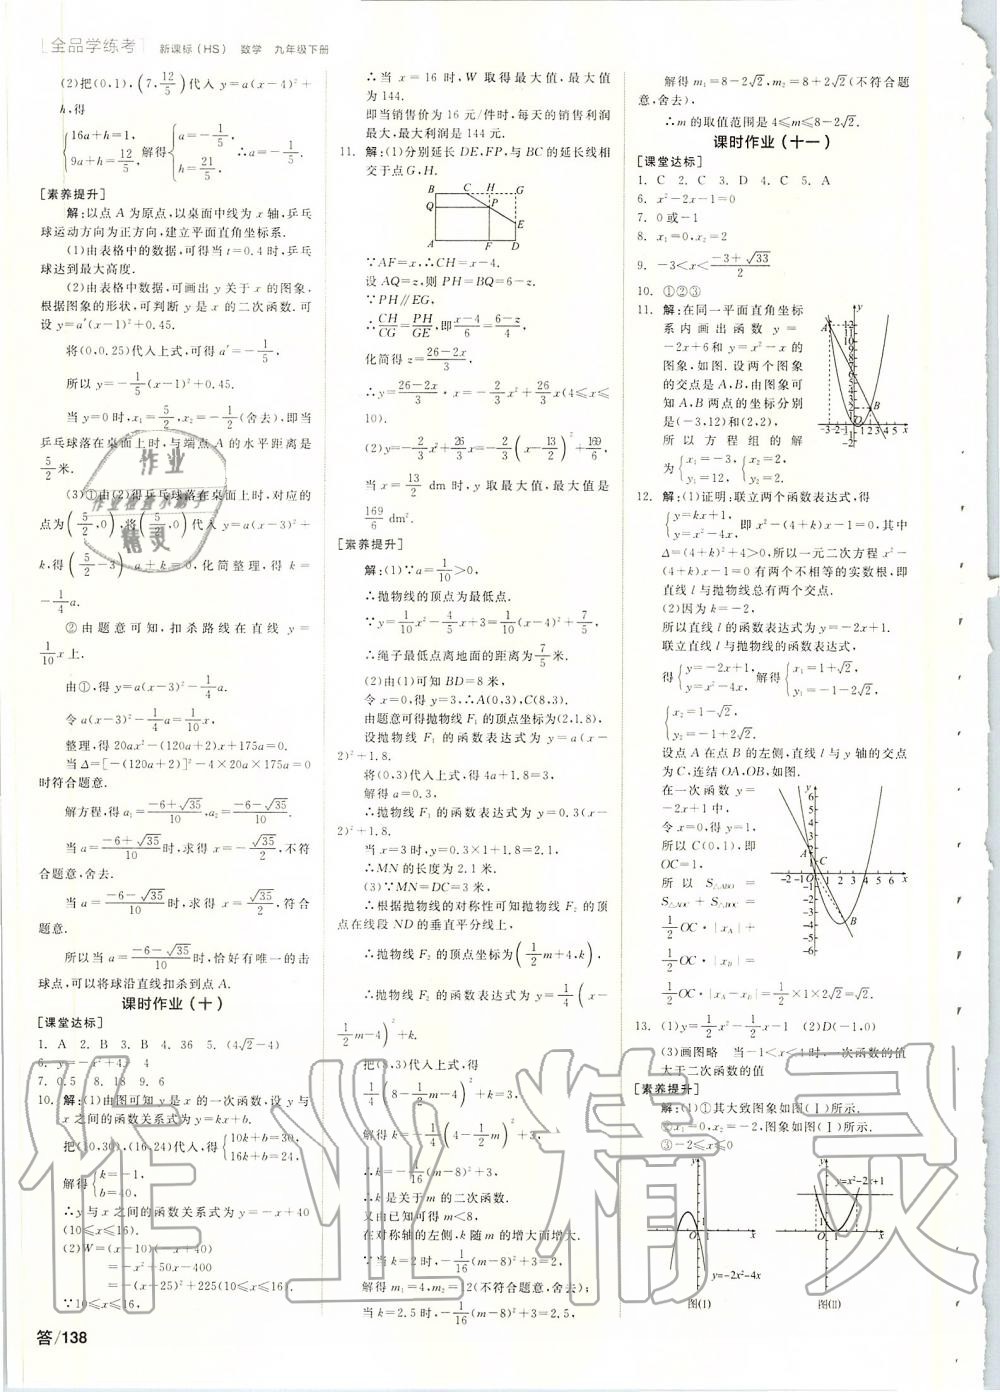 全品学练考 新课标(HS) 数学 九年级下册
(2)把(0,1),(7,12/5)代入 y=a(x-4)²+
h,得
{16a+h=1, 9a+h=12/5, 解得{a=-1/5, h=21/5, ∴a=-1/5.
[素养提升]
解:以点 A 为原点,以桌面中线为 x 轴,乒乓
球运动方向为正方向,建立平面直角坐标系.
(1)由表格中的数据,可得当 t=0.4 时,乒乓
球达到最大高度.
(2)由表格中数据,可画出 y 关于 x 的图象,
根据图象的形状,可判断 y 是 x 的二次函数.可
设 y=a'(x-1)²+0.45.
将(0,0.25)代入上式,可得 a'=-1/5,
所以 y=-1/5(x-1)²+0.45.
当 y=0 时,x₁=5/2,x₂=-1/2(舍去),即当
乒乓球落在桌面上时,与端点 A 的水平距离是
5/2米.
(3)①由(2)得乒乓球落在桌面上时,对应的
点为(5/2,0),将(5/2,0)代入 y=a(x-3)²+
k,得(5/2-3)²a+k=0,化简整理,得 k=
-1/4a.
②由题意可知,扣杀路线在直线 y=
1/10x 上.
由①,得 y=a(x-3)²-1/4a.
令 a(x-3)²-1/4a=1/10x,
整理,得 20ax²-(120a+2)x+175a=0.
当 Δ=[-(120a+2)]²-4×20a×175a=0
时符合题意.
解方程,得 a₁=(-6+√35)/10,a₂=(-6-√35)/10.
当 a=(-6+√35)/10时,求得 x=-√35/2,不符
合题意,舍去.
当 a=(-6-√35)/10时,求得 x=√35/2,符合
题意.
所以当 a=(-6-√35)/10时,恰好有唯一的击
球点,可以将球沿直线扣杀到点 A.
课时作业(十)
[课堂达标]
1. A 2. B 3. B 4. 36 5. (4√2-4)
6. y=-x²+4x 4
7. 0.5 8. 18 9. 6
10. 解:(1)由图可知 y 是 x 的一次函数,设 y 与
x 之间的函数关系式为 y=kx+b.
把(10,30),(16,24)代入,得{10k+b=30, 16k+b=24,
解得{k=-1, b=40,
∴y 与 x 之间的函数关系式为 y=-x+40
(10≤x≤16).
(2)W=(x-10)(-x+40)
=-x²+50x-400
=-(x-25)²+225(10≤x≤16).
∵10≤x≤16,
答/138
∴当 x=16 时,W 取得最大值,最大值
为 144.
即当销售价为 16 元/件时,每天的销售利润
最大,最大利润是 144 元.
11. 解:(1)分别延长 DE,FP,与 BC 的延长线相
交于点 G,H.
B C H G
Q P
E
A F D
∵AF=x,∴CH=x-4.
设 AQ=z,则 PH=BQ=6-z.
∵PH∥EG,
∴CH/CG=PH/GE,即(x-4)/6=(6-z)/4,
化简得 z=(26-2x)/3,
∴y=(26-2x)/3·x=-2/3x²+26/3x(4≤x≤
10).
(2)y=-2/3x²+26/3x=-2/3(x-13/2)²+169/6,
当 x=13/2 dm 时,y 取最大值,最大值是
169/6 dm².
[素养提升]
解:(1)∵a=1/10>0,
∴抛物线的顶点为最低点.
∵y=1/10x²-4/5x+3=1/10(x-4)²+7/5,
∴绳子最低点离地面的距离为7/5米.
(2)由(1)可知 BD=8 米,
令 x=0,得 y=3,∴A(0,3),C(8,3).
由题意可得抛物线 F₁ 的顶点坐标为(2,1.8),
设抛物线 F₁ 的函数表达式为 y=a(x-
2)²+1.8.
将(0,3)代入上式,得 4a+1.8=3,
解得 a=0.3,
∴抛物线 F₁ 的函数表达式为 y=0.3(x-
2)²+1.8.
当 x=3 时,y=0.3×1+1.8=2.1,
∴MN 的长度为 2.1 米.
(3)∵MN=DC=3 米,
∴根据抛物线的对称性可知抛物线 F₂ 的顶
点在线段 ND 的垂直平分线上,
∴抛物线 F₂ 的顶点坐标为(1/2m+4,k),
∴抛物线 F₂ 的函数表达式为 y=1/4(x-
1/2m-4)²+k.
把(8,3)代入上式,得
1/4(8-1/2m-4)²+k=3,
解得 k=-1/4(4-1/2m)²+3,
k=-1/16(m-8)²+3,
∴k 是关于 m 的二次函数.
又由已知可得 m<8,
在对称轴的左侧,k 随 m 的增大而增大.
∵当 k=2 时,-1/16(m-8)²+3=2,
解得 m₁=4,m₂=12(不符合题意,舍去);
当 k=2.5 时,-1/16(m-8)²+3=2.5,
解得 m₁=8-2√2,m₂=8+2√2(不符合题
意,舍去),
∴m 的取值范围是 4≤m≤8-2√2.
课时作业(十一)
[课堂达标]
1. C 2. C 3. D 4. C 5. A
6. x²-2x-1=0
7. 0或-1
8. x₁=0,x₂=2
9. -3<x<(-3+√33)/2
10. ①②③
11. 解:在同一平面直角坐标
系内画出函数 y=
-2x+6和 y=x²-x 的
图象,如图.设两个图象
的交点是 A,B,由图象可
知 A,B 两点的坐标分别
是(-3,12)和(2,2),
所以方程组的解
为{x₁=-3, y₁=12, {x₂=2, y₂=2.
12. 解:(1)证明:联立两个函数表达式,得
{y=kx+1, y=x²-4x, 即 x²-(4+k)x-1=0,其中
Δ=(4+k)²+4>0,所以一元二次方程 x²-
(4+k)x-1=0 有两个不相等的实数根,即
直线 l 与抛物线总有两个交点.
(2)因为 k=-2,
所以直线 l 的函数表达式为 y=-2x+1.
联立直线 l 与抛物线的函数表达式,
得{y=-2x+1, y=x²-4x, 解得{x₁=1+√2, y₁=-1-2√2,
{x₂=1-√2, y₂=-1+2√2.
设点 A 在点 B 的左侧,直线 l 与 y 轴的交点
为 C,连结 OA,OB,如图.
在一次函数 y=
-2x+1中,
令 x=0,得 y=1,
所以 C(0,1),即
OC=1,
所以 S△ABO=
S△AOC+S△BOC=
1/2OC·|xA|+
1/2OC·|xB|=
1/2OC·|xA-xB|=1/2×1×2√2=√2.
13. (1)y=1/2x²-1/2x-1 (2)D(-1,0)
(3)画图略 当-1<x<4 时,一次函数的值
大于二次函数的值
[素养提升]
解:(1)①其大致图象如图(Ⅰ)所示.
②x₁=0,x₂=-2,图象如图(Ⅰ)所示.
③-2≤x≤0
y=x²-2x+1
y=-2x²-4x
图(Ⅰ) 图(Ⅱ)
作业
作业检查小帮手
精灵
作业精灵